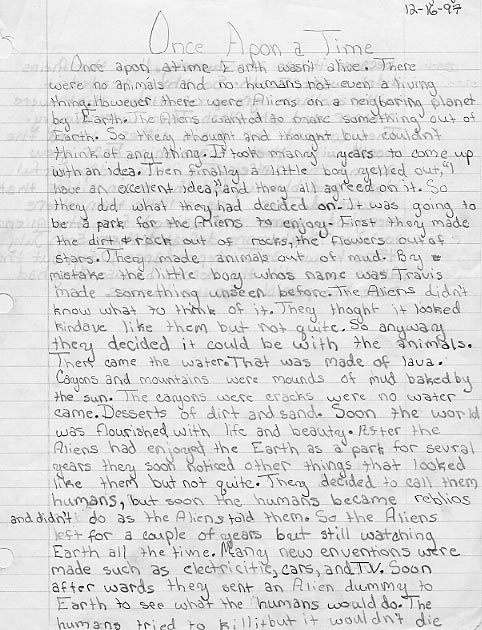 12-16-97
Once Apon a Time
Once apon atime Earth wasn't alive. There
were no animals and no humans not even a living
thing. However there were Aliens on a neigboring planet
by Earth. The Aliens wanted to make something out of
Earth. So they thought and thought but couldn't
think of any thing. It took many years to come up
with an idea. Then finally a little boy yelled out, "I
have an excellent idea," and they all agreed on it. So
they did what they had decided on. It was going to
be a park for the Aliens to enjoy. First they made
the dirt & rock out of rocks, the flowers out of
stars. They made animals out of mud. By
mistake the little boy whos name was Travis
made something unseen before. The Aliens didn't
know what to think of it. They thoght it looked
kindave like them but not quite. So anyway
they decided it could be with the animals.
Then came the water. That was made of lava.
Canyons and mountains were mounds of mud baked by
the sun. The canyons were cracks were no water
came. Desserts of dirt and sand. Soon the world
was flourished with life and beauty. After the
Aliens had enjoyed the Earth as a park for sevral
years they soon noticed other things that looked
like them but not quite. They decided to call them
humans, but soon the humans became reblios
and didn't do as the Aliens told them. So the Aliens
left for a couple of years but still watching
Earth all the time. Many new enventions were
made such as electricitie, cars, and T.V. Soon
after wards they sent an Alien dummy to
Earth to see what the humans would do. The
humans tried to kill it but it wouldn't die